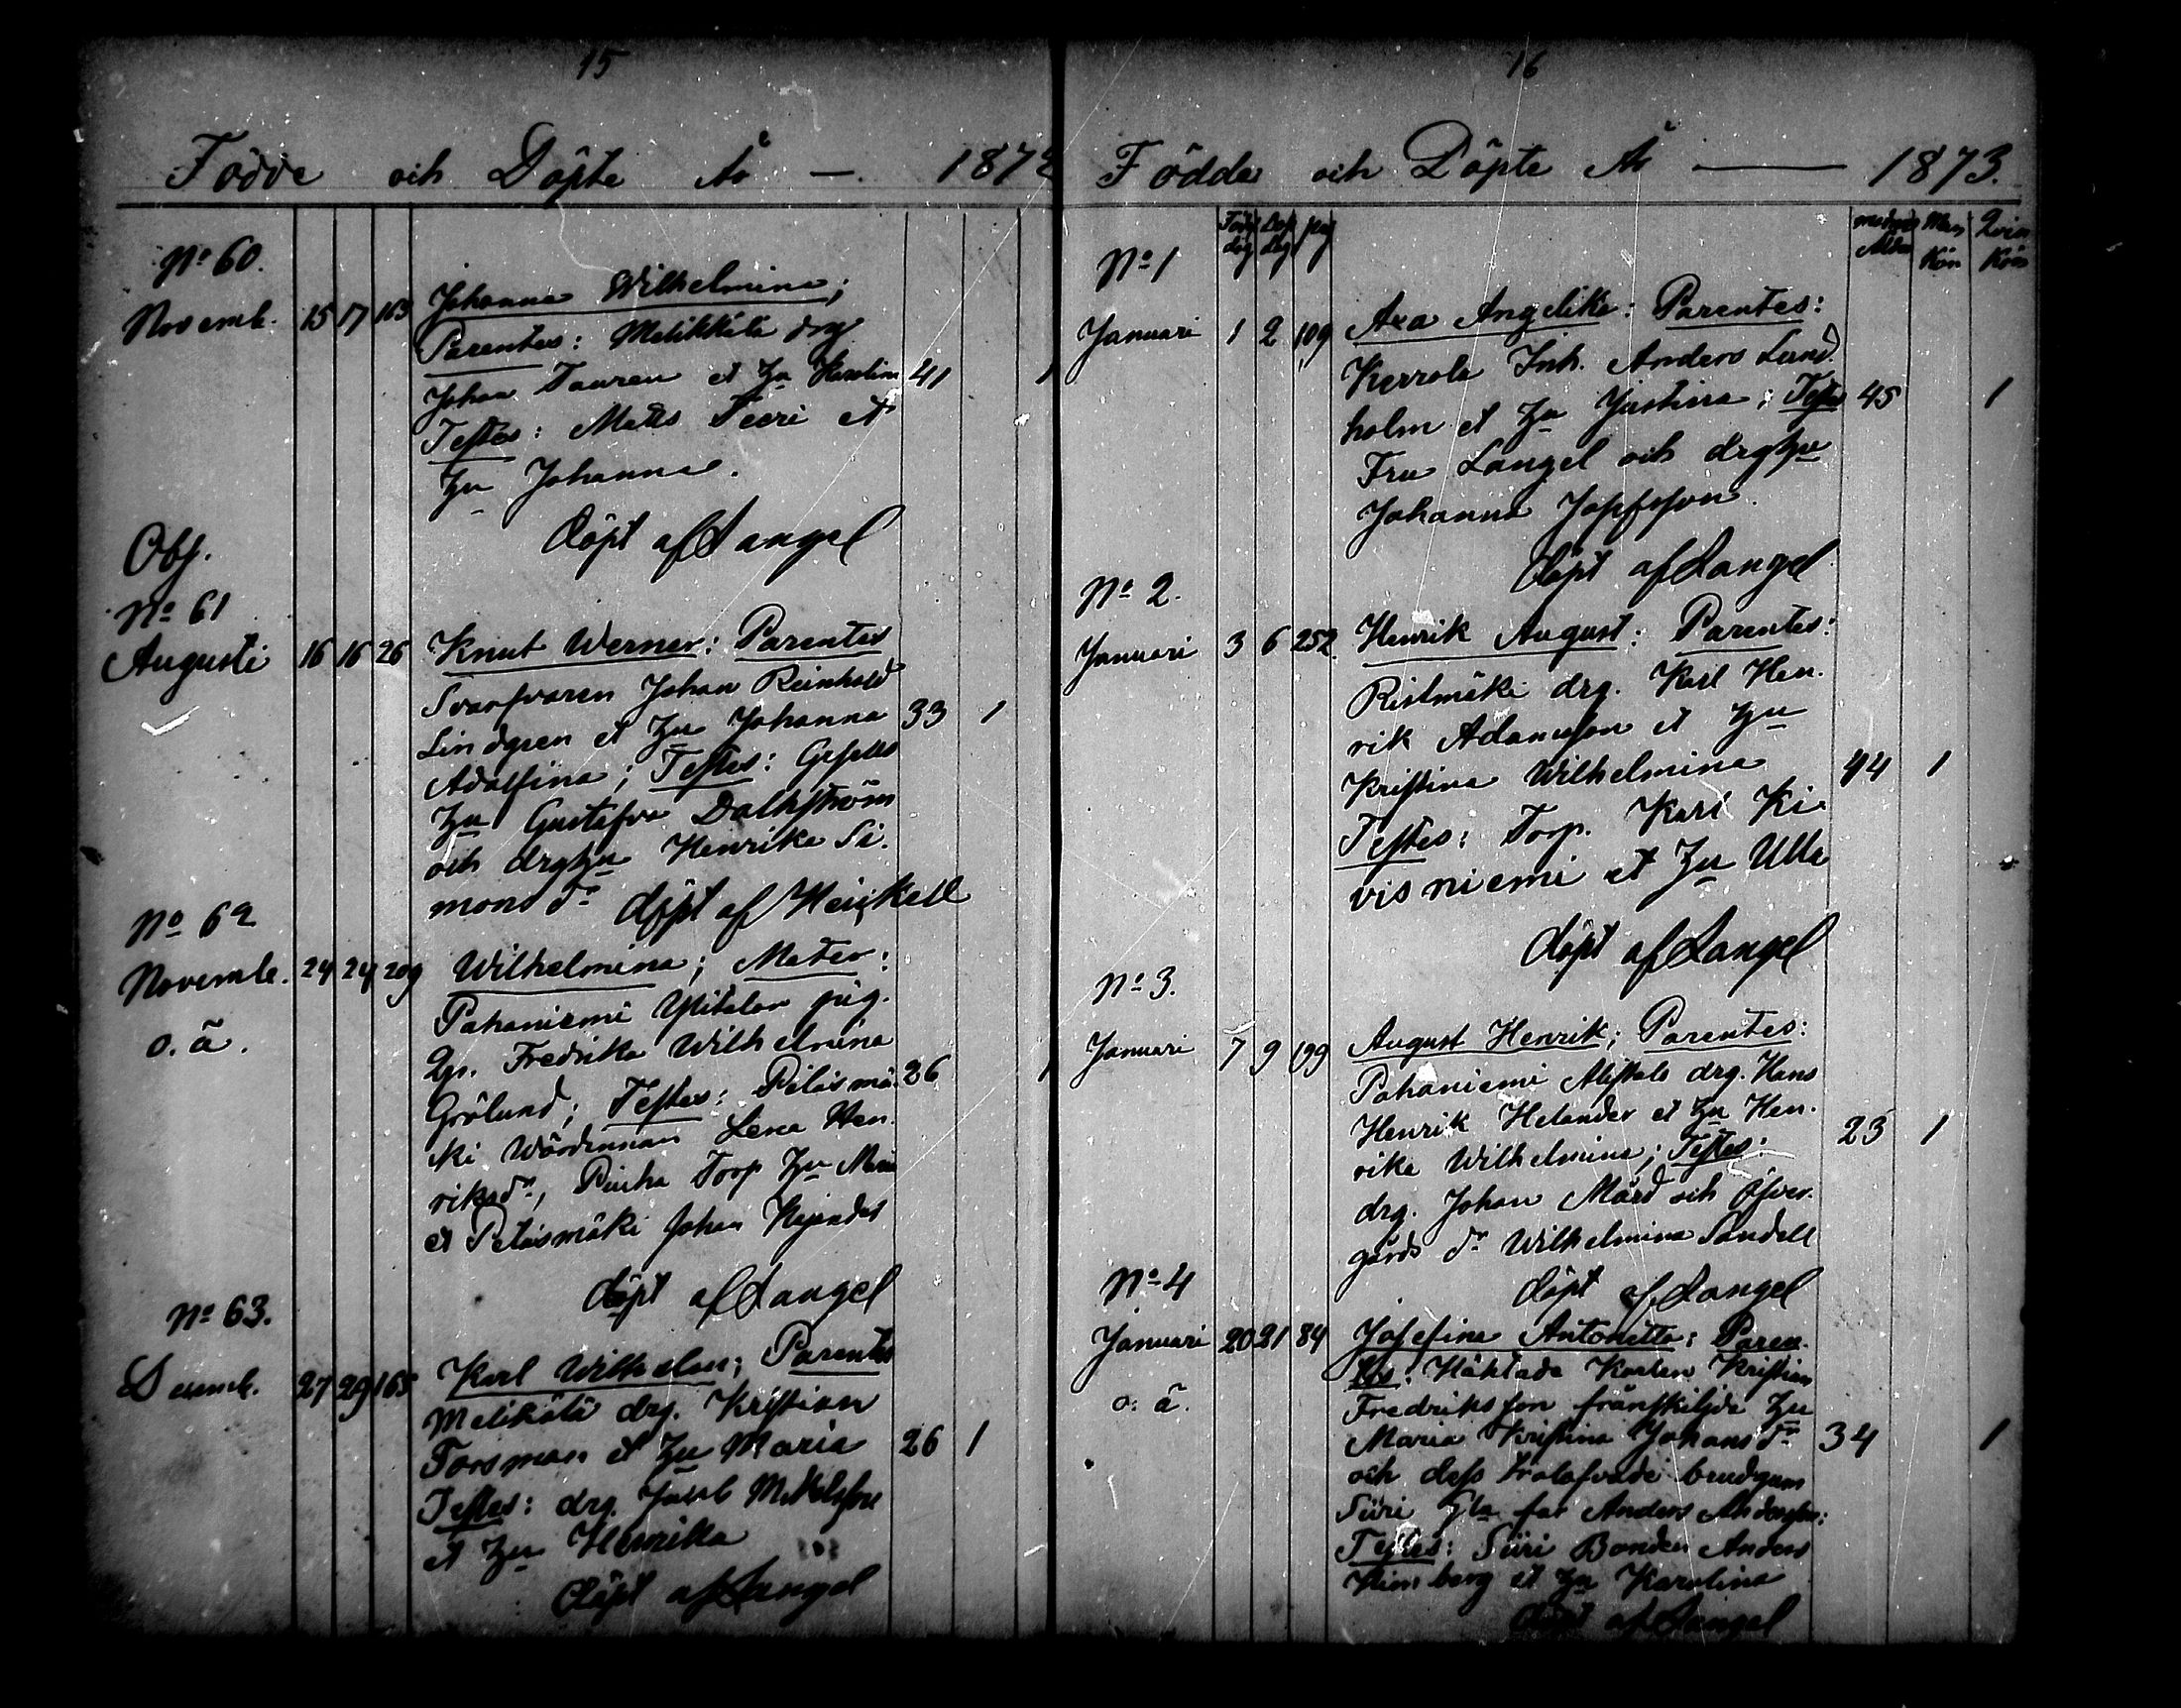 15
Födde och Döpte År — 1872
No 60.
Novemb. 15 17 163 Johanna Wilhelmina;
Parentes: Melikkälä drg
Johan Tauren et Hu Karolin 41 1
Testes: Matts Teeri et
Hu Johanna.
döpt af Langel
Obs.
No 61
Augusti 16 16 26 Knut Werner: Parentes
Svarfvaren Johan Reinhold
Lindgren et Hu Johanna 33 1
Adolfina; Testes: Gesells
Hu Gustafva Dalkström
och drghu Henrika Si-
monsdr döpt af Heikell
No 62
Novemb. 24 24 209 Wilhelmina; Mater:
o.ä. Pahaniemi Ylitalon pig.
Qp. Fredrika Wilhelmina
Grölund; Testes: Peläsmä- 26 1
ki Wärdinnan Lena Hen-
riksdr, Torp Hu Maria
et Peläsmäki Johan Kajandes
döpt af Langel
No 63.
Decemb. 27 29 165 Karl Wilhelm; Parentes
Melikälä drg. Kristian
Forsman et Hu Maria 26 1
Testes: drg. Jakob Mikelsson
et Hu Henrika
döpt af Langel
16
Födde och Döpte År — 1873.
Föd dag Döp dag pag modrens Ålder Man Kön Qvin Kön
No 1
Januari 1 2 109 Axa Angelika: Parentes:
Kerrola Inh. Anders Lund-
holm et Hu Justina; Testes 45 1
Fru Langel och drghu
Johanna
döpt af Langel
No 2.
Januari 3 6 252. Henrik August: Parentes:
Ristmäki drg. Karl Hen-
rik Adamsson et Hu
Kristina Wilhelmina 44 1
Testes: Torp. Karl Ki-
visniemi et Hu Ulla
döpt af Langel
No 3.
Januari 7 9 199 August Henrik; Parentes:
Pahaniemi Alistalo drg. Hans
Henrik Helander et Hu Hen-
rika Wilhelmina; Testes: 23 1
drg. Johan Mård och Öfver-
gårds dr Wilhelmina Sandell
döpt af Langel
No 4
Januari 20 21 84 Josefina Antonetta; Paren-
o. ä. tes: Häktade Karlen Kristian
Fredriksson frånskiljde Hu
Maria Kristina Johansdr 34 1
och dess trolofvade brudgum
Siiri Anders Andersson:
Testes: Siiri Bonden Anders
Kimberg et Hu Karolina
döpt af Langel